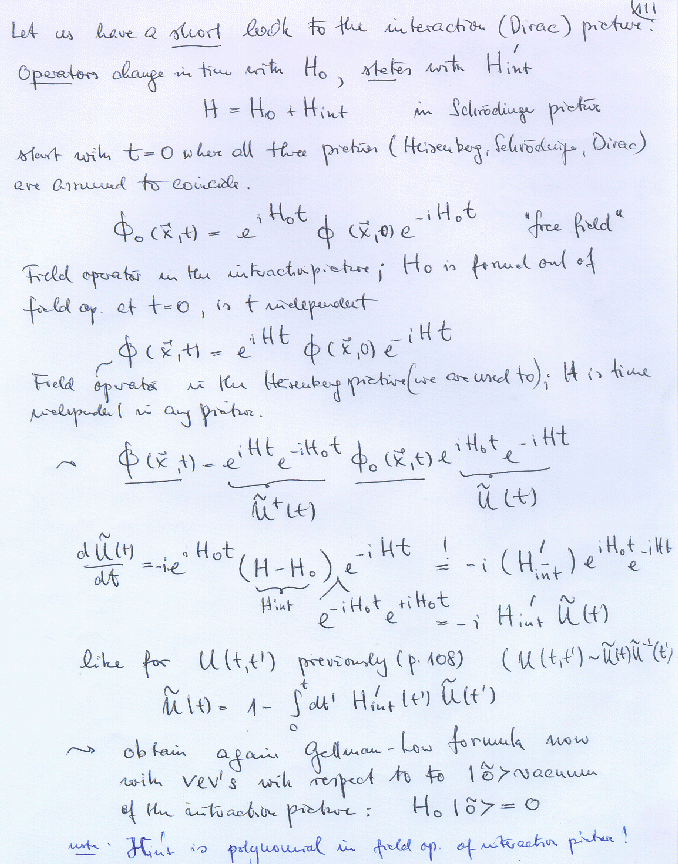 111
Let us have a short look to the interaction (Dirac) picture!
Operators change in time with H₀, states with H′int
H = H₀ + Hint in Schrödinge picture
start with t=0 where all three pictures (Heisenberg, Schrödinger, Dirac)
are assumed to coincide.
ϕ₀(x⃗,t) = e^{iH₀t} ϕ(x⃗,0) e^{-iH₀t} "free field"
Field operator in the interaction picture; H₀ is formed out of
field op. at t=0, is t independent
ϕ(x⃗,t) = e^{iHt} ϕ(x⃗,0) e^{-iHt}
Field operator in the Heisenberg picture (we are used to); H is time
independent in any picture.
~ ϕ(x⃗,t) = e^{iHt} e^{-iH₀t} ϕ₀(x⃗,t) e^{iH₀t} e^{-iHt}
Ũ⁺(t) Ũ(t)
dŨ(t)/dt = -i e^{iH₀t} (H-H₀) e^{-iHt} =! -i (H′int) e^{iH₀t} e^{-iHt}
Hint e^{-iH₀t} e^{+iH₀t} = -i H′int Ũ(t)
like for U(t,t') previously (p. 108) (U(t,t') ~ Ũ(t)Ũ⁻¹(t')
Ũ(t) = 1 - ∫₀ᵗ dt' H′int(t') Ũ(t')
~> obtain again Gellman-Low formula now
with VEV's with respect to to |õ> vacuum
of the interaction picture: H₀|õ> = 0
note: H′int is polynomial in field op. of interaction picture!